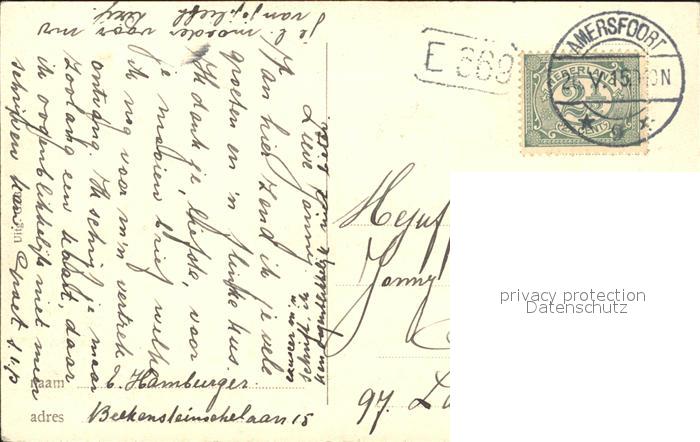 AMERSFOORT
E 669
NEDERLAND
2½
CENT
Lieve Jonny,
Van hier zend ik je vele
groeten en 'n flinke kus.
Ik dank je, liefste, voor
je mooien brief, welke
ik nog voor m'n vertrek
ontving. Ik schrijf je maar
zoolang een kaart, daar
ik oogenblikkelijk niet meer
schrijven kan.
je l. moeder voor me
van je liefh.
Mejuf
Jonny
97. La
naam E. Hamburger.
adres Beekensteinschelaan 15
privacy protection
Datenschutz